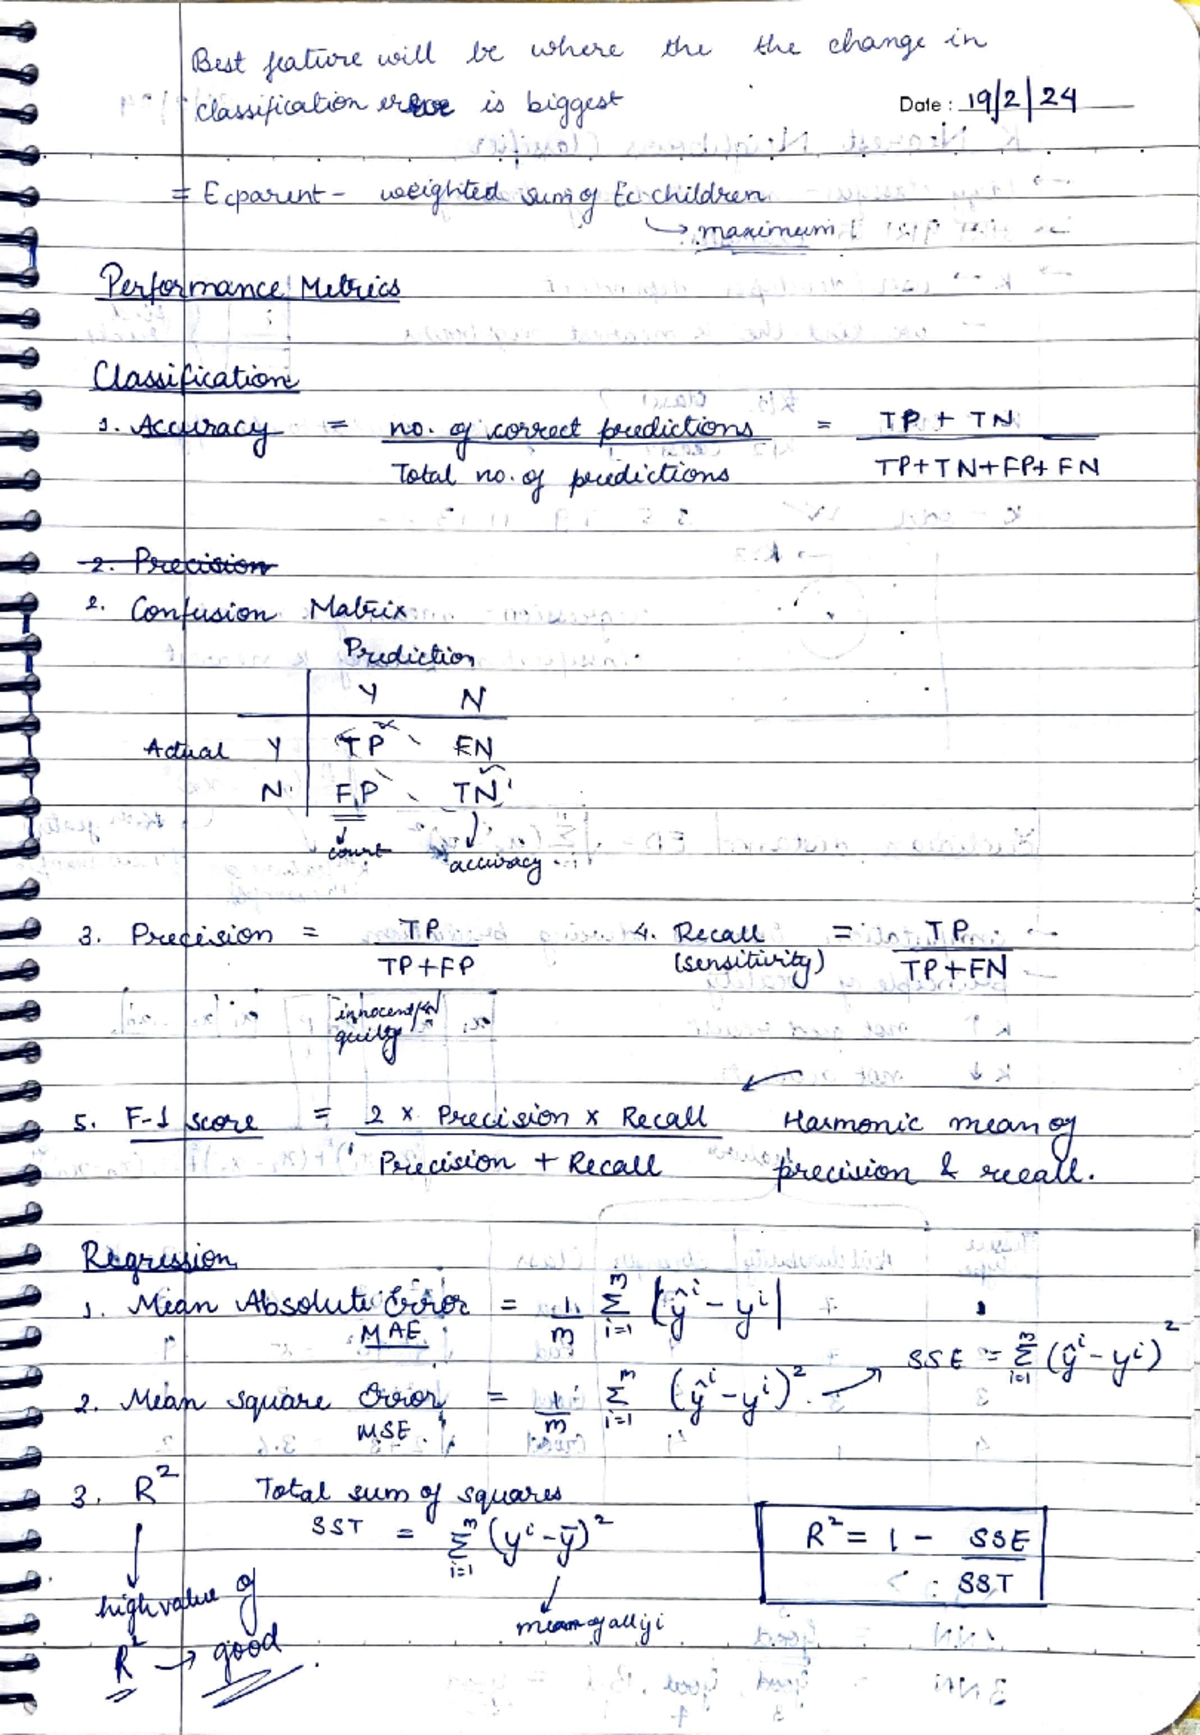 Best feature will be where the the change in
classification error is biggest
Date : 19/2/24
= Ecparent - weighted sum of Ec children
→ maximum
Performance Metrics
Classification
1. Accuracy = no. of correct predictions / Total no. of predictions = TP + TN / TP+TN+FP+FN
2. Precision
2. Confusion Matrix
Prediction
Y N
Actual Y TP FN
N FP TN
court accuracy
3. Precision = TP / TP+FP 4. Recall (sensitivity) = TP / TP+FN
innocent
guilty
5. F-1 score = 2 × Precision × Recall / Precision + Recall
Harmonic mean of
precision & recall.
Regression
1. Mean Absolute Error = 1/m Σ i=1 m |ŷ^i - y^i|
MAE
2. Mean square Error = 1/m Σ i=1 m (ŷ^i - y^i)² → SSE = Σ i=1 m (ŷ^i - y^i)²
MSE
3. R² Total sum of squares
SST = Σ i=1 m (y^i - ȳ)²
mean of all yi
R² = 1 - SSE / SST
high value of
R² → good